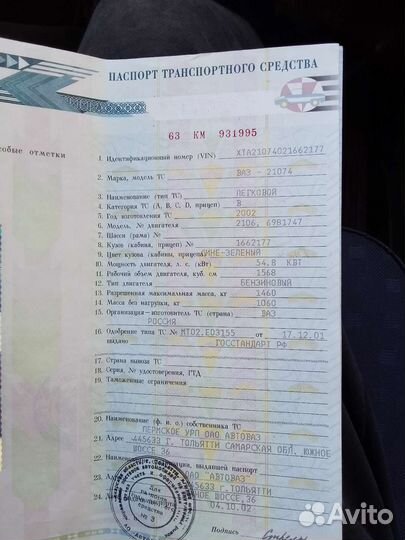 ПАСПОРТ ТРАНСПОРТНОГО СРЕДСТВА
63 КМ 931995
особые отметки
1. Идентификационный номер (VIN) XTA21074021662177
2. Марка, модель ТС ВАЗ - 21074
3. Наименование (тип ТС) ЛЕГКОВОЙ
4. Категория ТС (А, В, С, D, прицеп) В
5. Год изготовления ТС 2002
6. Модель, № двигателя 2106, 6981747
7. Шасси (рама) №
8. Кузов (кабина, прицеп) № 1662177
9. Цвет кузова (кабины, прицепа) СИНЕ-ЗЕЛЕНЫЙ
10. Мощность двигателя, л. с. (кВт) 54.8 КВТ
11. Рабочий объем двигателя, куб. см 1568
12. Тип двигателя БЕНЗИНОВЫЙ
13. Разрешенная максимальная масса, кг 1460
14. Масса без нагрузки, кг 1060
15. Организация-изготовитель ТС (страна) ВАЗ
РОССИЯ
16. Одобрение типа ТС № МТ02.Е03155 от 17.12.01
выдано ГОССТАНДАРТ РФ
17. Страна вывоза ТС
18. Серия, № удостоверения, ГТД
19. Таможенные ограничения
20. Наименование (ф. и. о.) собственника ТС
ПЕРМСКОЕ УРП ОАО АВТОВАЗ
21. Адрес 445633 Г. ТОЛЬЯТТИ САМАРСКАЯ ОБЛ. ЮЖНОЕ
ШОССЕ 36
22. Наименование организации, выдавшей паспорт
ОАО "АВТОВАЗ"
23. Адрес 445633 Г. ТОЛЬЯТТИ
ЮЖНОЕ ШОССЕ, 36
24. 04.10.02
Для
паспортов
транспортных
средств
№ 3
Подпись
Avito